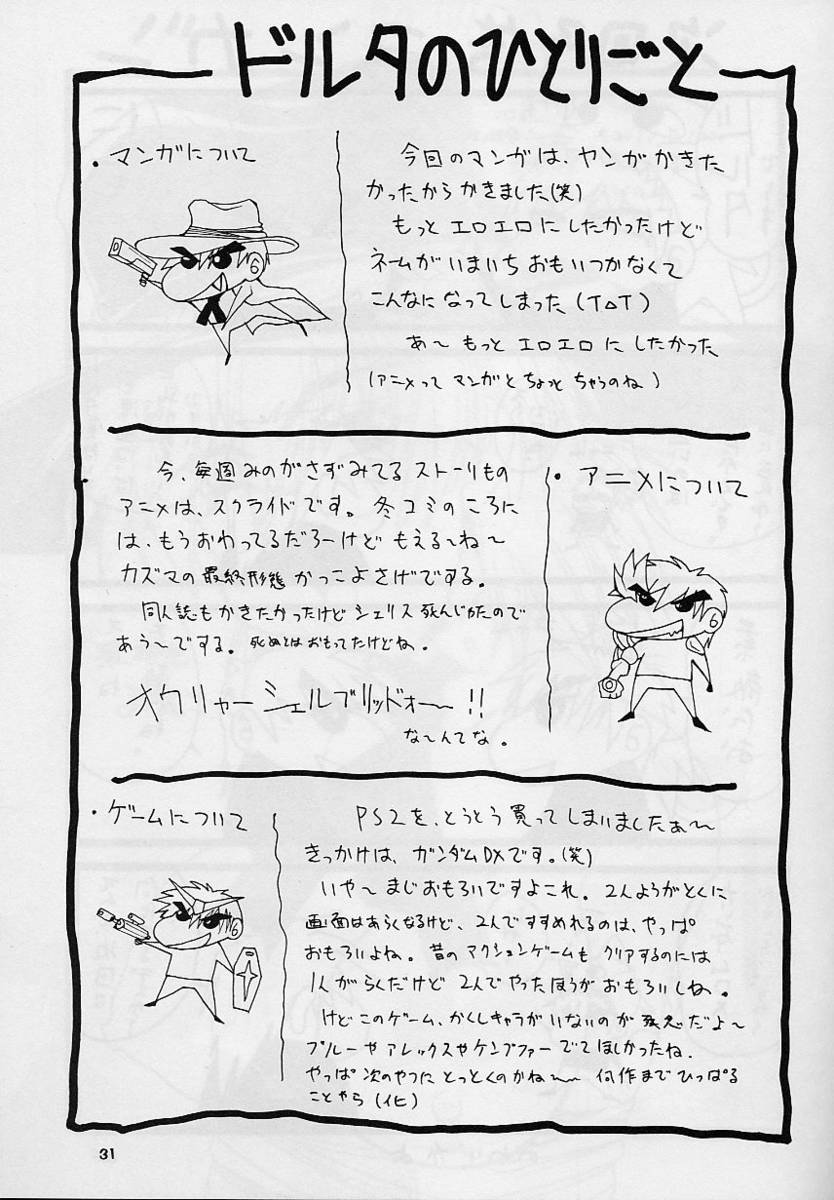 ドルタのひとりごと
・マンガについて
今回のマンガは、ヤンがかきた
かったからかきました(笑)
もっとエロエロにしたかったけど
ネームがいまいちおもいつかなくて
こんなになってしまった(T△T)
あ〜もっとエロエロにしたかった
(アニメってマンガとちょっとちゃうのね)
・アニメについて
今、毎週みのがさずみてるストーリもの
アニメは、スクライドです。冬コミのころに
は、もうおわってるだろーけどもえる〜ね〜
カズマの最終形態かっこよさげでする。
同人誌もかきたかったけどシェリス死んじがたので
あう〜でする。死ぬとはおもてたけどね。
オクリャーシェルブリッドォー〜!!
な〜んてな。
・ゲームについて
PS2を、とうとう買ってしまいましたぁ〜
きっかけは、ガンダムDXです。(笑)
いや〜まじおもろいですよこれ。2人ようがとくに
画面はあらくなるけど、2人ですすめれるのは、やっぱ
おもろいよね。昔のアクションゲームもクリアするのには
1人がらくだけど2人でやったほうがおもろいしね。
けどこのゲーム、かくしキャラがいないのが残念だよ〜
プルーやアレックスやケンプファーでてほしかったね.
やっぱ次のやつにとっとくのかね〜〜何作までひっぱる
ことやら
31